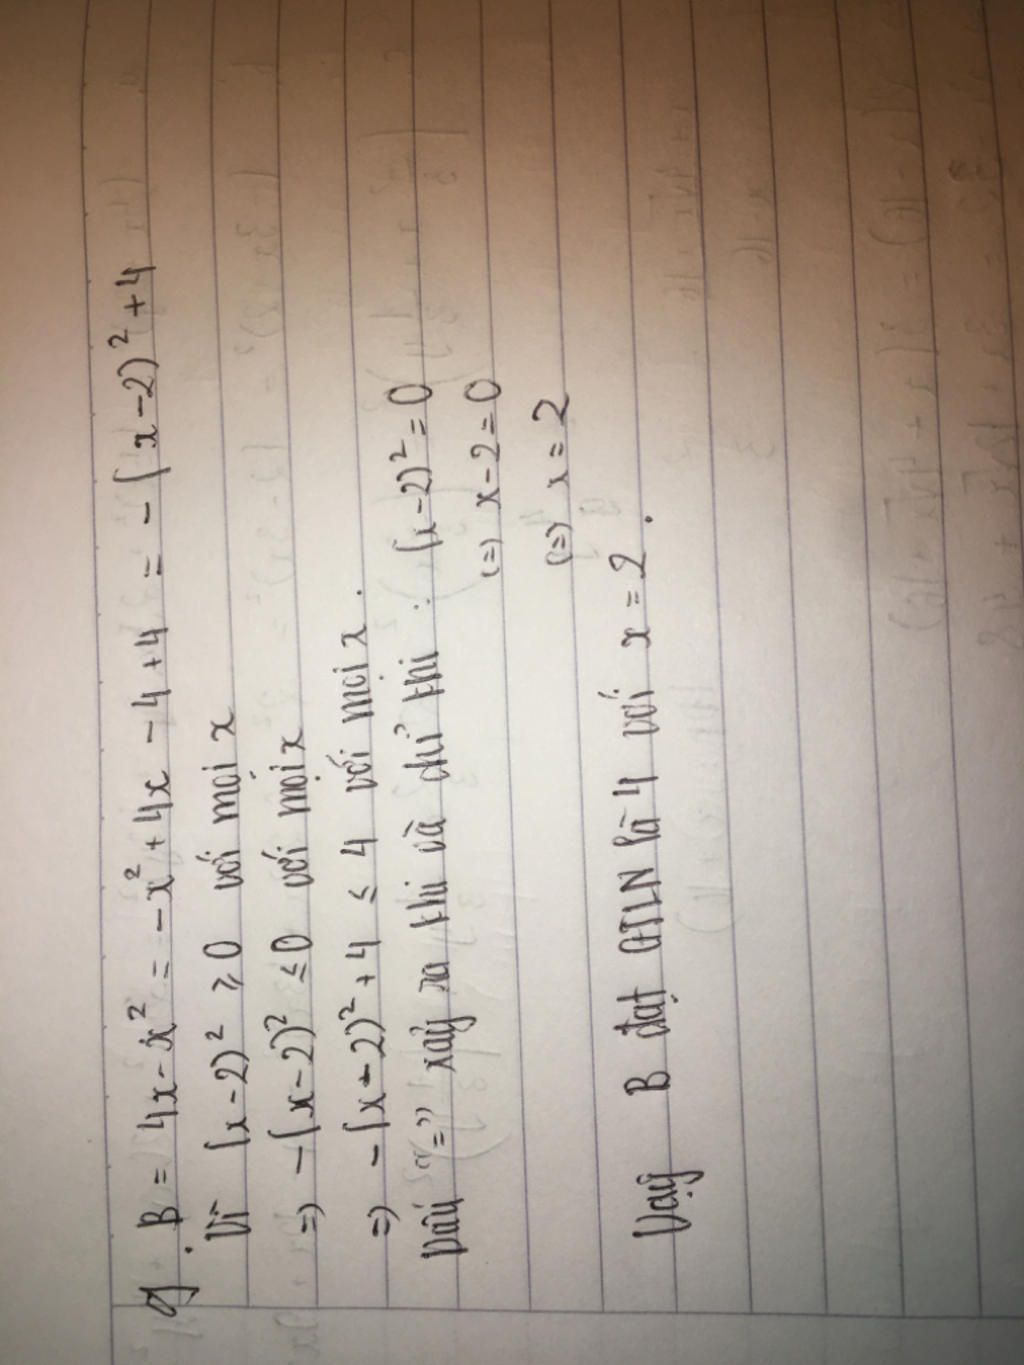 a. B = 4x - x² = -x² + 4x - 4 + 4 = -(x-2)² + 4
Vì (x-2)² ≥ 0 với mọi x
=> -(x-2)² ≤ 0 với mọi x
=> -(x-2)² + 4 ≤ 4 với mọi x.
Dấu "=" xảy ra khi và chỉ khi : (x-2)² = 0
(=) x-2=0
(=) x = 2
Vạy B đạt GTLN là 4 với x = 2.